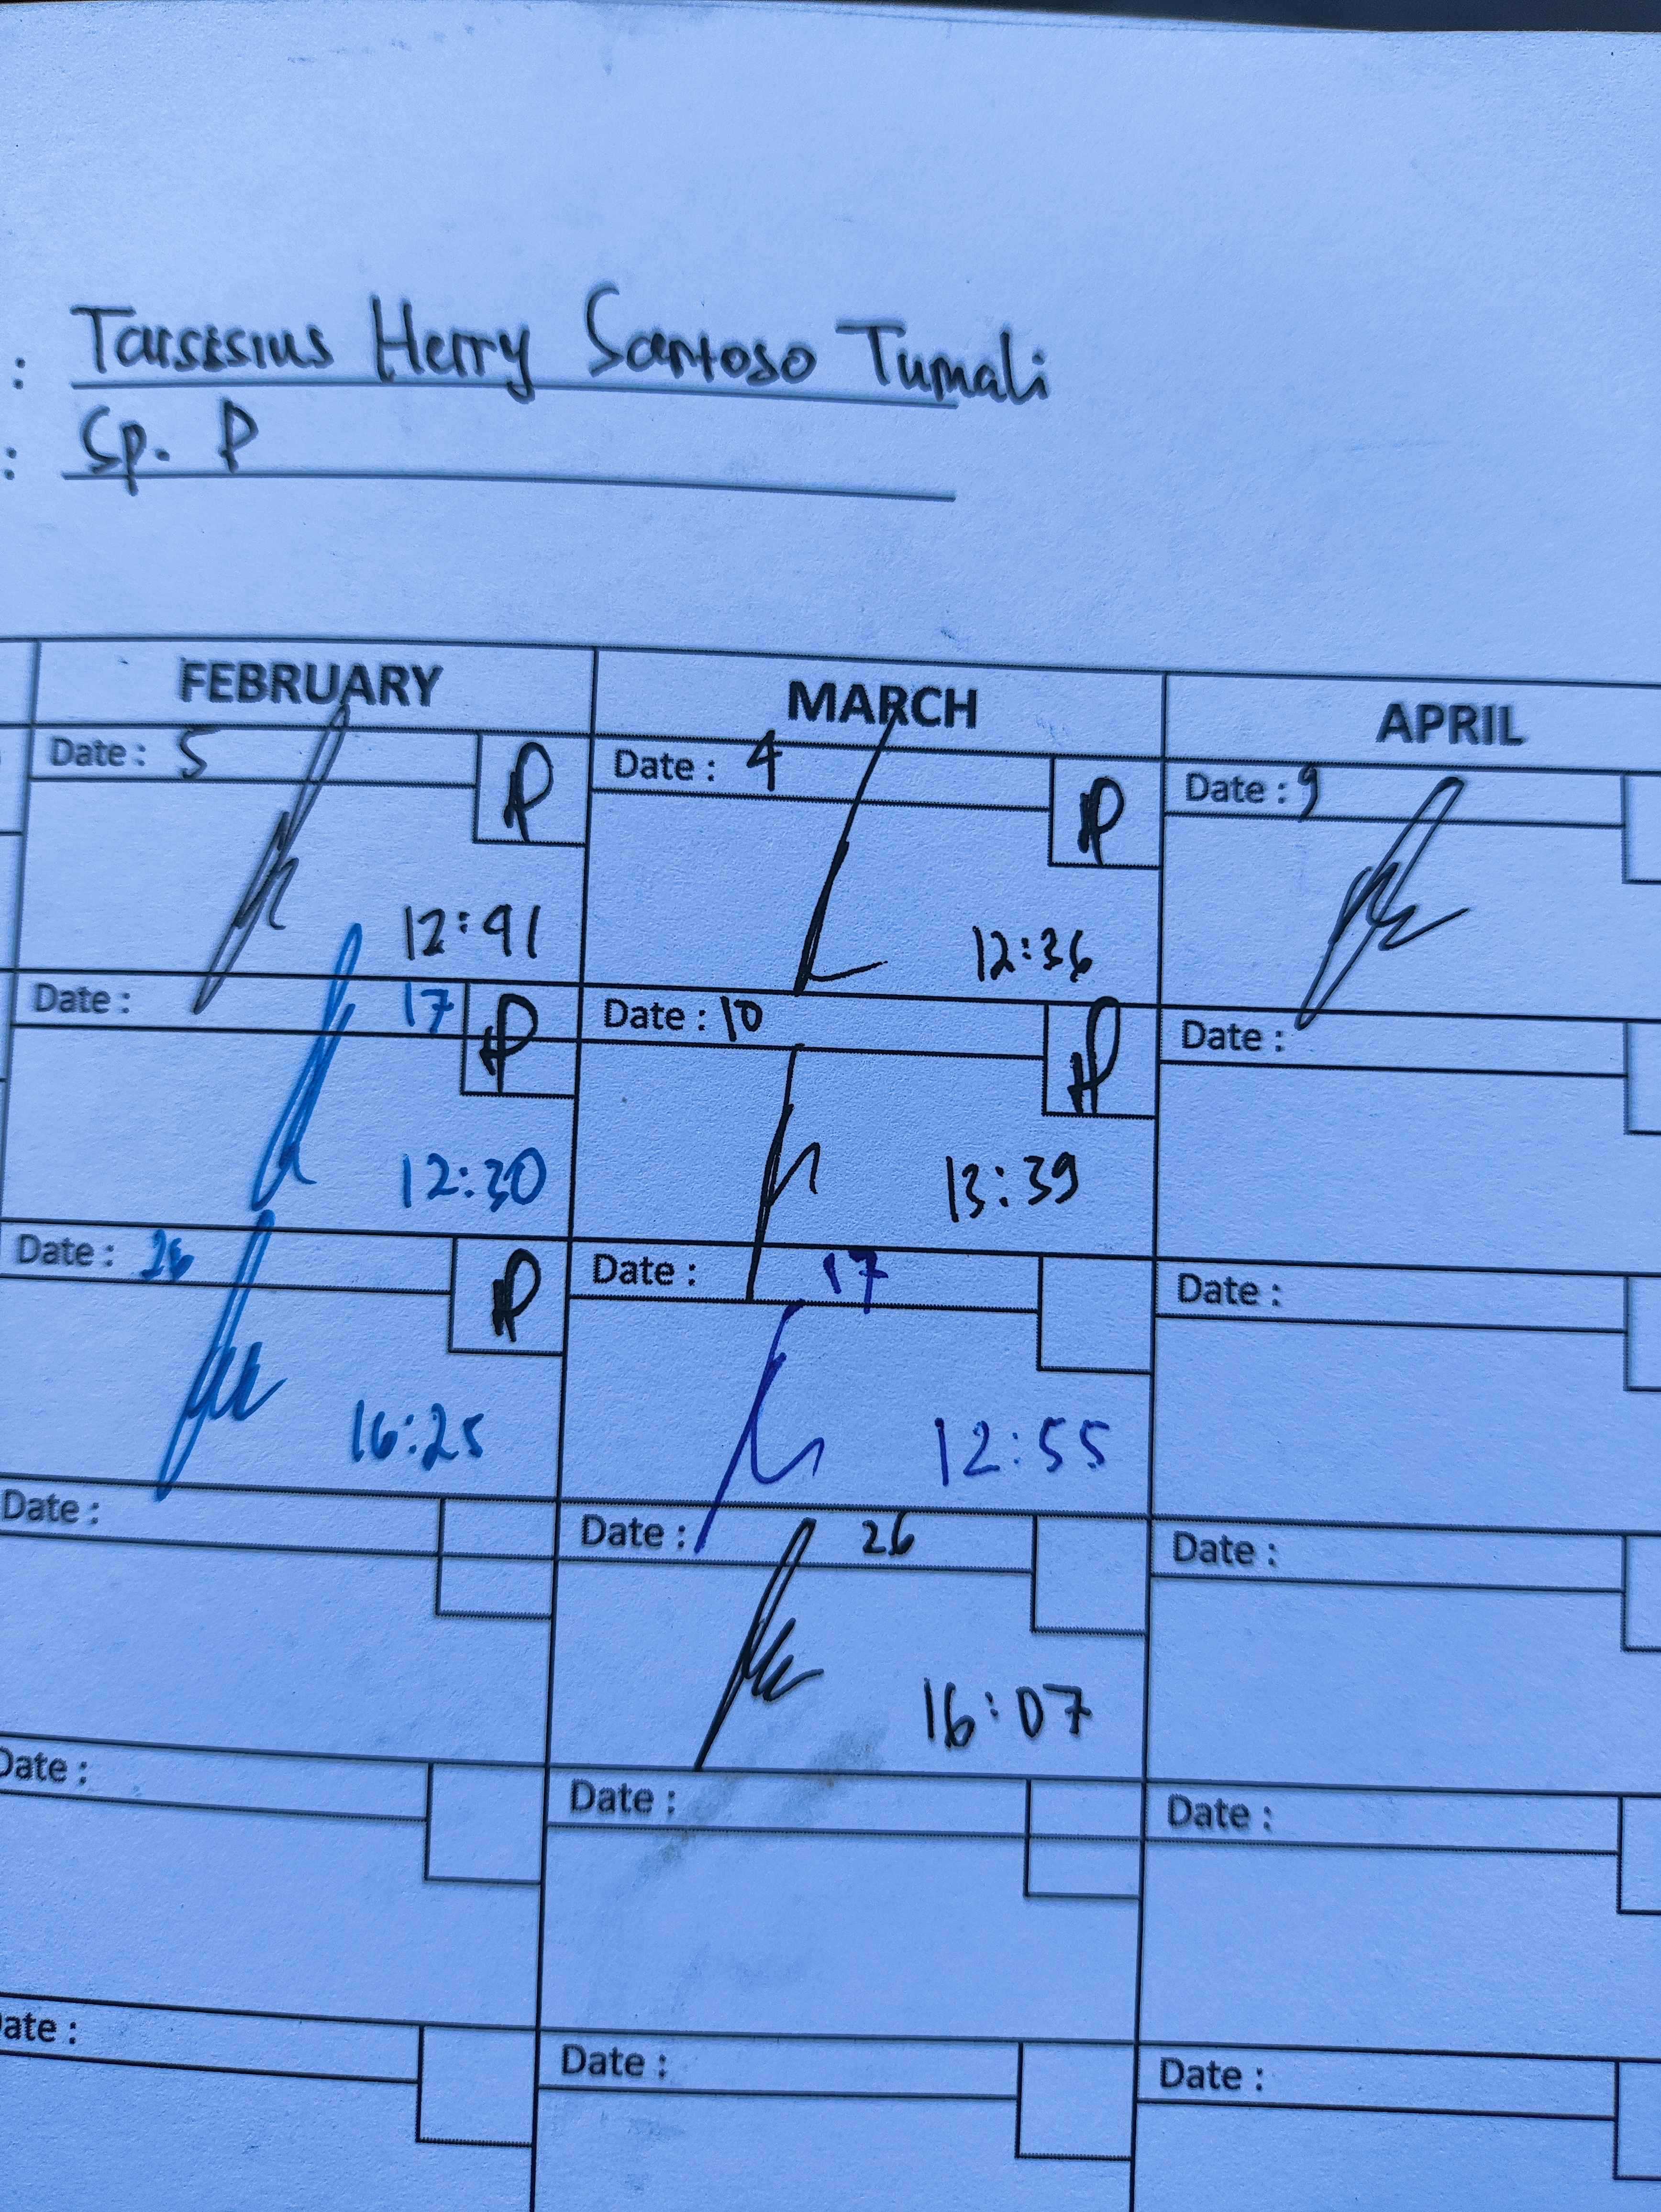 : Tarsisius Herry Santoso Tumali
: Sp. P
FEBRUARY MARCH APRIL
Date : 5 Date : 4 Date : 9
12:41 12:36
Date : 17 Date : 10 Date :
12:30 13:39
Date : 26 Date : 17 Date :
16:25 12:55
Date : Date : 26 Date :
16:07
Date : Date : Date :
Date : Date : Date :